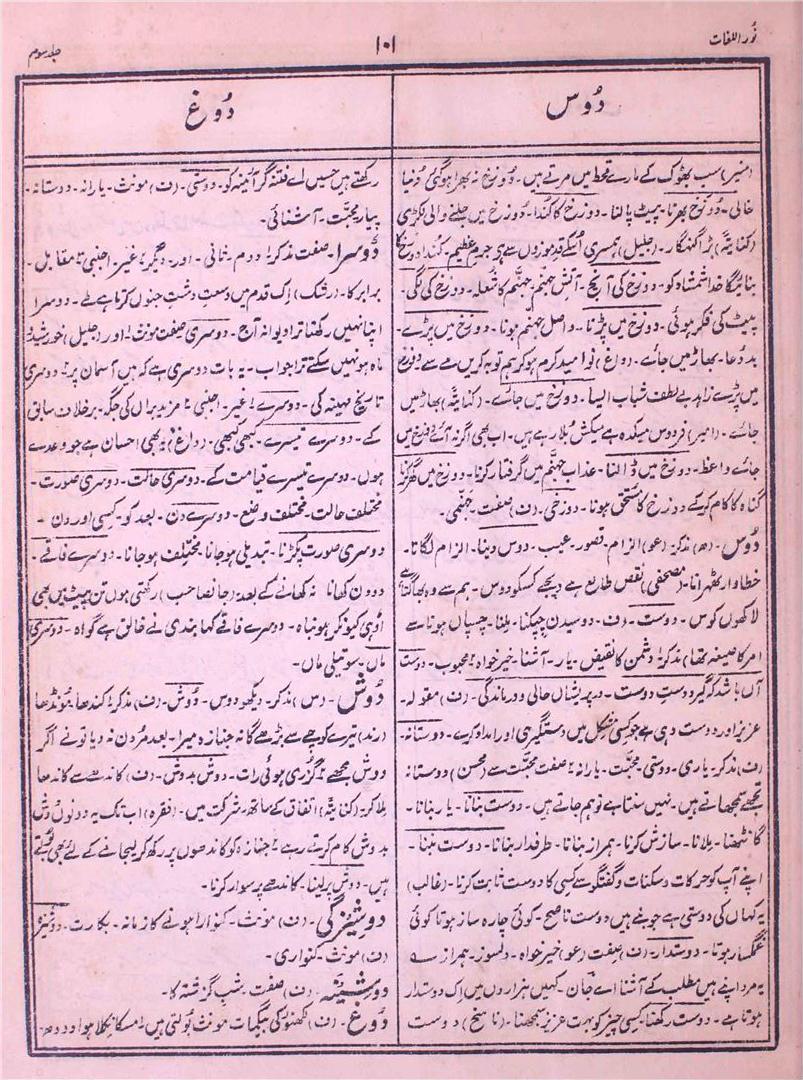 نور اللغات
۱۰۱
جلد سوم
دُوس
دُوغ
(منیر) سب بھوک کے مارے قحط میں مرتے ہیں۔ دوزخ نہ بھرا ہوگئی دنیا
خالی۔ دوزخ بھرنا۔ پیٹ پالنا۔ دوزخ کا کندا۔ دوزخ میں جلنے والی لکڑی
(کنایتہً) بڑا گنہگار۔ (جلیل) ہمسری اُسکے قد موزوں سے ہے جرم عظیم۔ کندا دوزخ کا
بنائیگا خدا شمشاد کو۔ دوزخ کی آنچ۔ آتش جہنم۔ جہنم کا شعلہ۔ دوزخ کی لگی۔
پیٹ کی فکر ہوئی۔ دوزخ میں پڑنا۔ واصل جہنم ہونا۔ دوزخ میں پڑے۔
بددعا۔ بھاڑ میں جائے۔ (داغ) نوامید کرم ہوکر ہم توبہ کریں مے سے؛ دوزخ
میں پڑے زاہد بے لطف شباب ایسا۔ دوزخ میں جائے۔ (کنایتہً) بھاڑ میں
جائے۔ (امیر) فردوس میکدہ ہے میکش بلا رہے ہیں۔ اب بھی اگر نہ آئے دوزخ میں
جائے واعظ۔ دوزخ میں ڈالنا۔ عذاب جہنم میں گرفتار کرنا۔ دوزخ میں گھر کرنا
گناہ کا کام کرکے دوزخ کا مستحق ہونا۔ دوزخی۔ (ف) صفت۔ جہنمی۔
دُوس۔ (ھ) مذکر۔ (عو) الزام۔ قصور۔ عیب۔ دوس دینا۔ الزام لگانا۔
خطاوار ٹھہرانا۔ (مصحفی) نقص طالع ہے دیجے کسکو دوس۔ ہم سے وہ بھاگتا ہے
لاکھوں کوس۔ دوست۔ (ف۔ دوسیدن چپکنا۔ ملنا۔ چسپاں ہونا سے
امر کا صیغہ تھا) مذکر؛ دشمن کا نقیض۔ یار۔ آشنا۔ خیرخواہ؛ محبوب۔ دوست
آں باشد کہ گیرد دست دوست۔ در پریشاں حالی و درماندگی۔ (ف) مقولہ۔
عزیز اور دوست وہی ہے جو کسی مشکل میں دستگیری اور امداد کرے۔ دوستانہ۔
(ف) مذکر۔ یاری۔ دوستی۔ محبت۔ یارانہ؛ صفت محبت سے (محسن) دوستانہ
تجھے سمجھاتے ہیں۔ نہیں سنتا ہے تو ہم جاتے ہیں۔ دوست بنانا۔ یار بنانا۔
گانٹھنا۔ ملانا۔ سازش کرنا۔ ہمراز بنانا۔ طرفدار بنانا۔ دوست بننا۔
اپنے آپ کو حرکات و سکنات و گفتگو سے کسی کا دوست ثابت کرنا۔ (غالب)
یہ کہاں کی دوستی ہے جو بنے ہیں دوست ناصح۔ کوئی چارہ ساز ہوتا کوئی
غمگسار ہوتا۔ دوستدار۔ (ف) صفت (عو) خیرخواہ۔ دلسوز۔ ہمراز سے
یہ مرد اپنے ہیں مطلب کے آشنا اے جان۔ کہیں ہزاروں میں اک دوستدار
ہوتا ہے۔ دوست رکھنا۔ کسی چیز کو بہت عزیز سمجھنا۔ (ناسخ) دوست
رکھتے ہیں حسیں اے فتنہ گر آئینہ کو۔ دوستی۔ (ف) مونث۔ یارانہ۔ دوستانہ۔
پیار محبت۔ آشنائی۔
دُوسرا۔ صفت مذکر؛ دوم۔ ثانی۔ اور۔ دیگر؛ غیر۔ اجنبی؛ مقابل۔
برابر کا۔ (رشک) اک قدم میں وسعت دشت جنوں کرتا ہے طے۔ دوسرا
اپنا نہیں رکھتا ترا دیوانہ آج۔ دوسری صفت مونث؛ اور (جلیل) خورشید و
ماہ ہو نہیں سکتے ترا جواب۔ یہ بات دوسری ہے کہ ہیں آسمان پر؛ دوسری
تاریخ مہینہ کی۔ دوسرے؛ غیر۔ اجنبی؛ مزید براں کی جگہ۔ برخلاف سابق
کے۔ دوسرے تیسرے۔ کبھی کبھی۔ (داغ) یہ بھی احسان ہے جو وعدے
ہوں۔ دوسرے تیسرے قیامت کے۔ دوسری حالت۔ دوسری صورت۔
مختلف حالت۔ مختلف وضع۔ دوسرے دن۔ بعد کو۔ کسی اور دن۔
دوسری صورت پکڑنا۔ تبدیلی ہوجانا۔ مختلف ہوجانا۔ دوسرے فاقے۔
دو دن کھانا نہ کھانے کے بعد؛ (جانصاحب) رکھتی ہوں تن پیٹ میں بھی
اُوئی کیونکر ہو نباہ۔ دوسرے فاقے کما بندی نے خالق ہے گواہ۔ دوسری
ماں۔ سوتیلی ماں۔
دُوش۔ (س) مذکر۔ دیکھو دوس۔ دُوش۔ (ف) مذکر؛ کندھا۔ مونڈھا
(رند) تیرے کوچے سے بڑھے گا نہ جنازہ میرا۔ بعد مُردن نہ دیا تو نے اگر
دوش مجھے؛ گزری ہوئی رات۔ دوش بدوش۔ (ف) کاندھے سے کاندھا
ملا کر۔ (کنایتہً) اتفاق کے ساتھ۔ شرکت میں۔ (فقرہ) اب تک یہ دونوں دوش
بدوش کام کرتے رہے؛ جنازہ کو کاندھوں پر رکھ کر لیجانے کے لئے بھی کہتے
ہیں۔ دوش پر لینا۔ کاندھے پر سوار کرنا۔
دوشیزگی۔ (ف) مونث۔ کنوارا ہونے کا زمانہ۔ بکارت۔ دوشیزہ
(ف) مونث۔ کنواری۔
دوشینہ۔ (ف) صفت۔ شب گزشتہ کا۔
دُوغ۔ (ف) لکھنؤ کی بیگمات مونث بولتی ہیں؛ مسکا نکلا ہوا دودھ۔